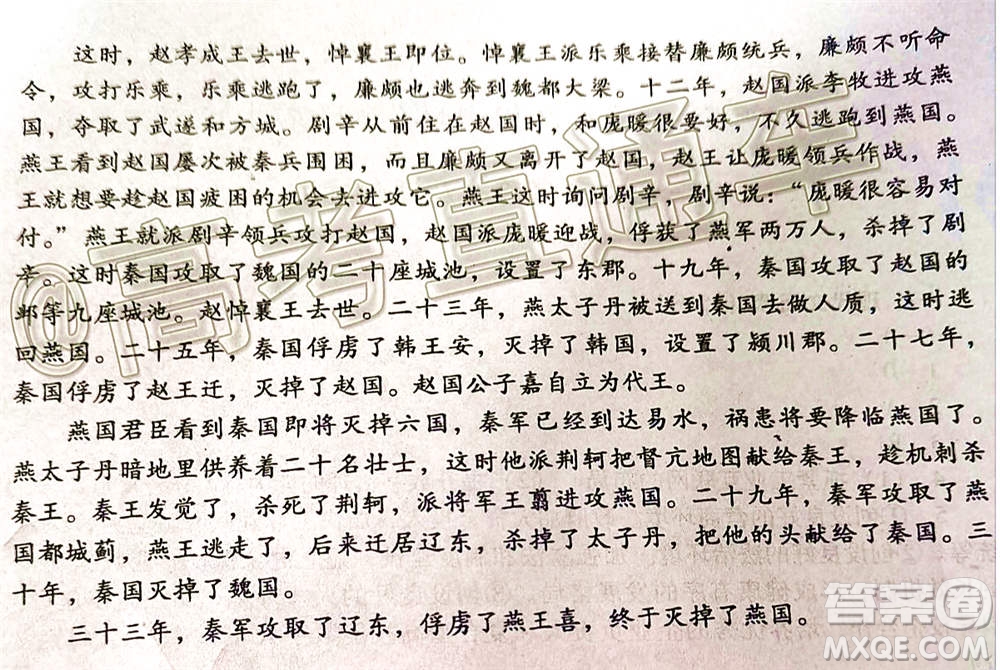 这时，赵孝成王去世，悼襄王即位。悼襄王派乐乘接替廉颇统兵，廉颇不听命
令，攻打乐乘，乐乘逃跑了，廉颇也逃奔到魏都大梁。十二年，赵国派李牧进攻燕
国，夺取了武遂和方城。剧辛从前住在赵国时，和庞暖很要好，不久逃跑到燕国。
燕王看到赵国屡次被秦兵围困，而且廉颇又离开了赵国，赵王让庞暖领兵作战，燕
王就想要趁赵国疲困的机会去进攻它。燕王这时询问剧辛，剧辛说：“庞暖很容易对
付。”燕王就派剧辛领兵攻打赵国，赵国派庞暖迎战，俘获了燕军两万人，杀掉了剧
辛。这时秦国攻取了魏国的二十座城池，设置了东郡。十九年，秦国攻取了赵国的
邺等九座城池。赵悼襄王去世。二十三年，燕太子丹被送到秦国去做人质，这时逃
回燕国。二十五年，秦国俘虏了韩王安，灭掉了韩国，设置了颍川郡。二十七年，
秦国俘虏了赵王迁，灭掉了赵国。赵国公子嘉自立为代王。
燕国君臣看到秦国即将灭掉六国，秦军已经到达易水，祸患将要降临燕国了。
燕太子丹暗地里供养着二十名壮士，这时他派荆轲把督亢地图献给秦王，趁机刺杀
秦王。秦王发觉了，杀死了荆轲，派将军王翦进攻燕国。二十九年，秦军攻取了燕
国都城蓟，燕王逃走了，后来迁居辽东，杀掉了太子丹，把他的头献给了秦国。三
十年，秦国灭掉了魏国。
三十三年，秦军攻取了辽东，俘虏了燕王喜，终于灭掉了燕国。
@高考直通车
答案圈
MXQE.COM